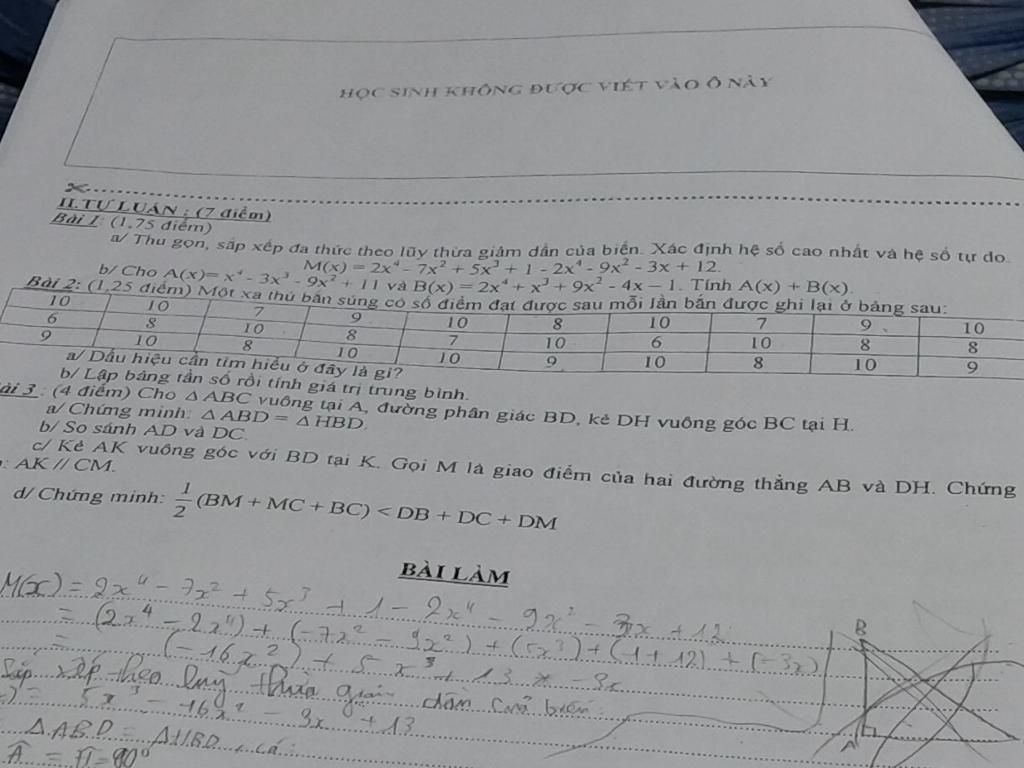 HỌC SINH KHÔNG ĐƯỢC VIẾT VÀO Ô NÀY
II.TỰ LUẬN : (7 điểm)
Bài 1: (1,75 điểm)
a/ Thu gọn, sắp xếp đa thức theo lũy thừa giảm dần của biến. Xác định hệ số cao nhất và hệ số tự do.
M(x) = 2x⁴ - 7x² + 5x³ + 1 - 2x⁴ - 9x² - 3x + 12.
b/ Cho A(x)= x⁴ - 3x³ - 9x² + 11 và B(x) = 2x⁴ + x³ + 9x² - 4x – 1. Tính A(x) + B(x).
Bài 2: (1,25 điểm) Một xạ thủ bắn súng có số điểm đạt được sau mỗi lần bắn được ghi lại ở bảng sau:
10 10 7 9 10 8 10 7 9 10
6 8 10 8 7 10 6 10 8 8
9 10 8 10 10 9 10 8 10 9
a/ Dấu hiệu cần tìm hiểu ở đây là gì?
b/ Lập bảng tần số rồi tính giá trị trung bình.
ài 3 : (4 điểm) Cho Δ ABC vuông tại A, đường phân giác BD, kẻ DH vuông góc BC tại H.
a/ Chứng minh: Δ ABD = Δ HBD.
b/ So sánh AD và DC.
c/ Kẻ AK vuông góc với BD tại K. Gọi M là giao điểm của hai đường thẳng AB và DH. Chứng
: AK // CM.
d/ Chứng minh: 1/2 (BM + MC + BC) < DB + DC + DM
BÀI LÀM
M(x) = 2x⁴ - 7x² + 5x³ + 1 - 2x⁴ - 9x² - 3x + 12
= (2x⁴ - 2x⁴) + (-7x² - 9x²) + (5x³) + (1 + 12) + (-3x)
= (-16x²) + 5x³ + 13 - 3x
Sắp xếp theo luỹ thừa giảm dần của biến:
) = 5x³ - 16x² - 3x + 13
Δ ABD = Δ HBD, có:
Â = Ĥ = 90°
B
A